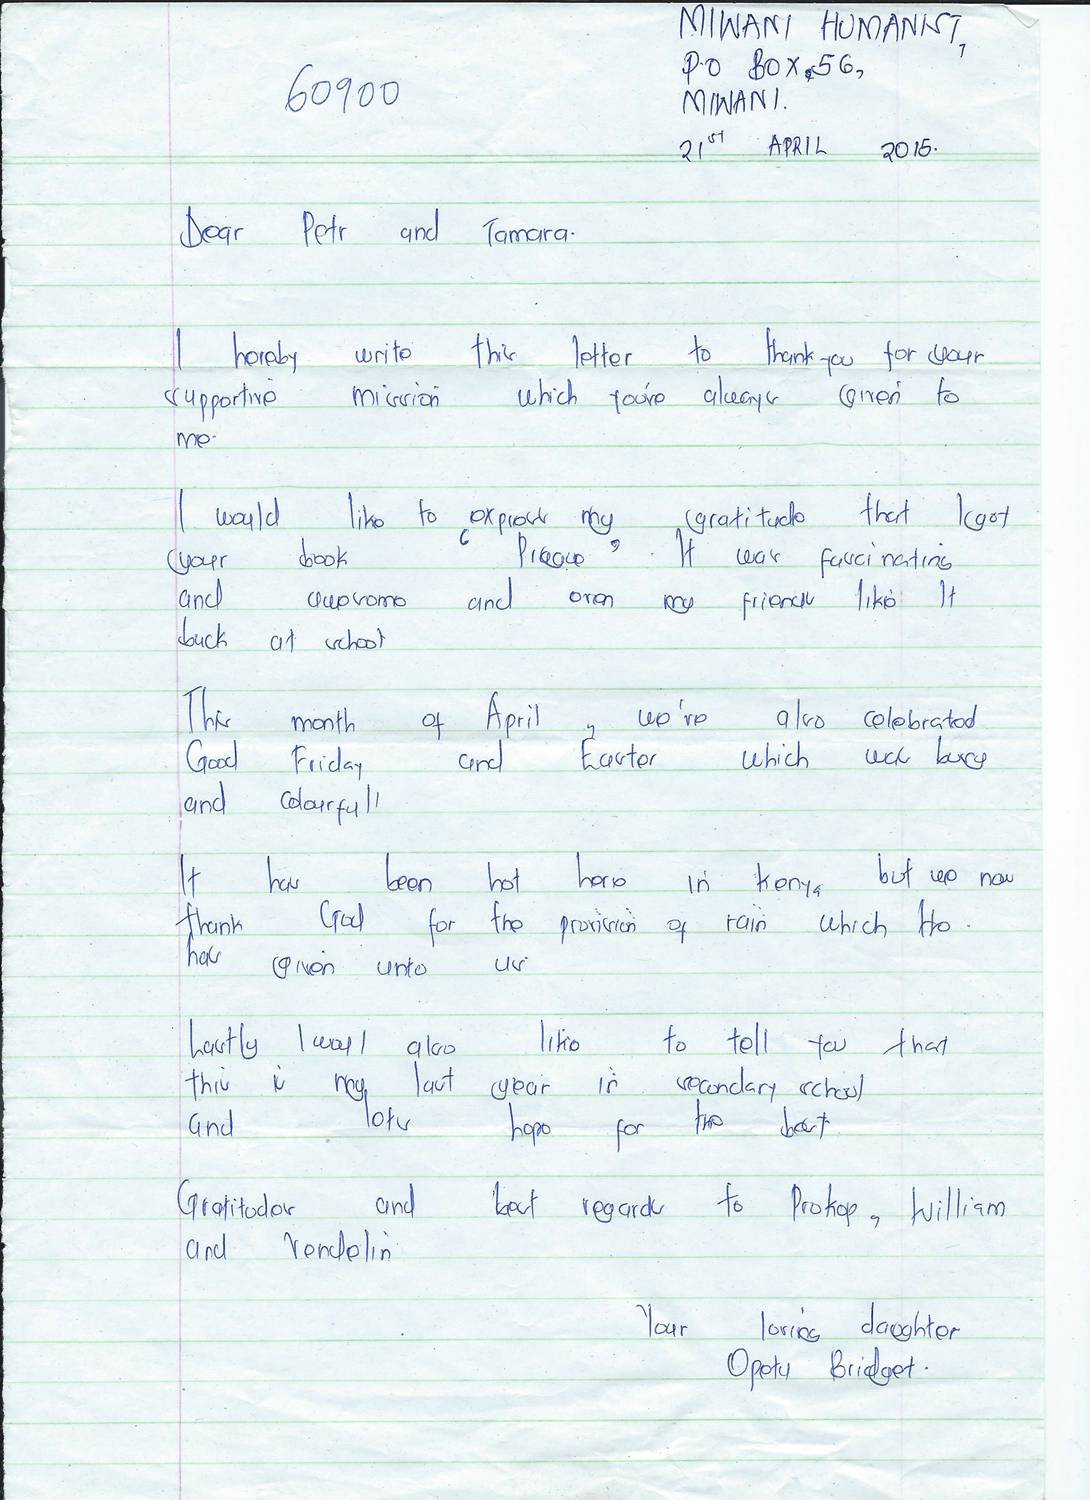 MIWANI HUMANIST,
60900
P.O BOX 56,
MIWANI.
21st APRIL 2015.
Dear Petr and Tamara.
I hereby write this letter to thank you for your
supportive mission which you've always given to
me.
I would like to express my gratitude that I got
your book ‘ Prague ’ . It was fascinating
and supreme and even my friends like It
back at school
This month of April , we've also celebrated
Good Friday and Easter which was busy
and colourfull
It has been hot here in Kenya but we now
thank God for the provision of rain which He .
has given unto us
Lastly I would also like to tell you that
this is my last year in secondary school
and lots hope for the best.
Gratitudes and best regards to Prokop, William
and Vendelin
Your loving daughter
Bridget.